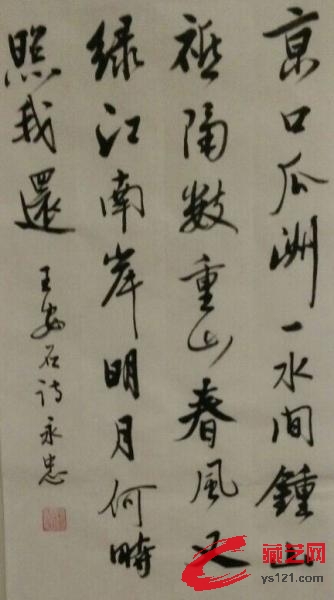 京口瓜洲一水间鍾山
祗隔数重山春风又
绿江南岸明月何時
照我還
王安石诗永忠
藏艺网
ys121.com